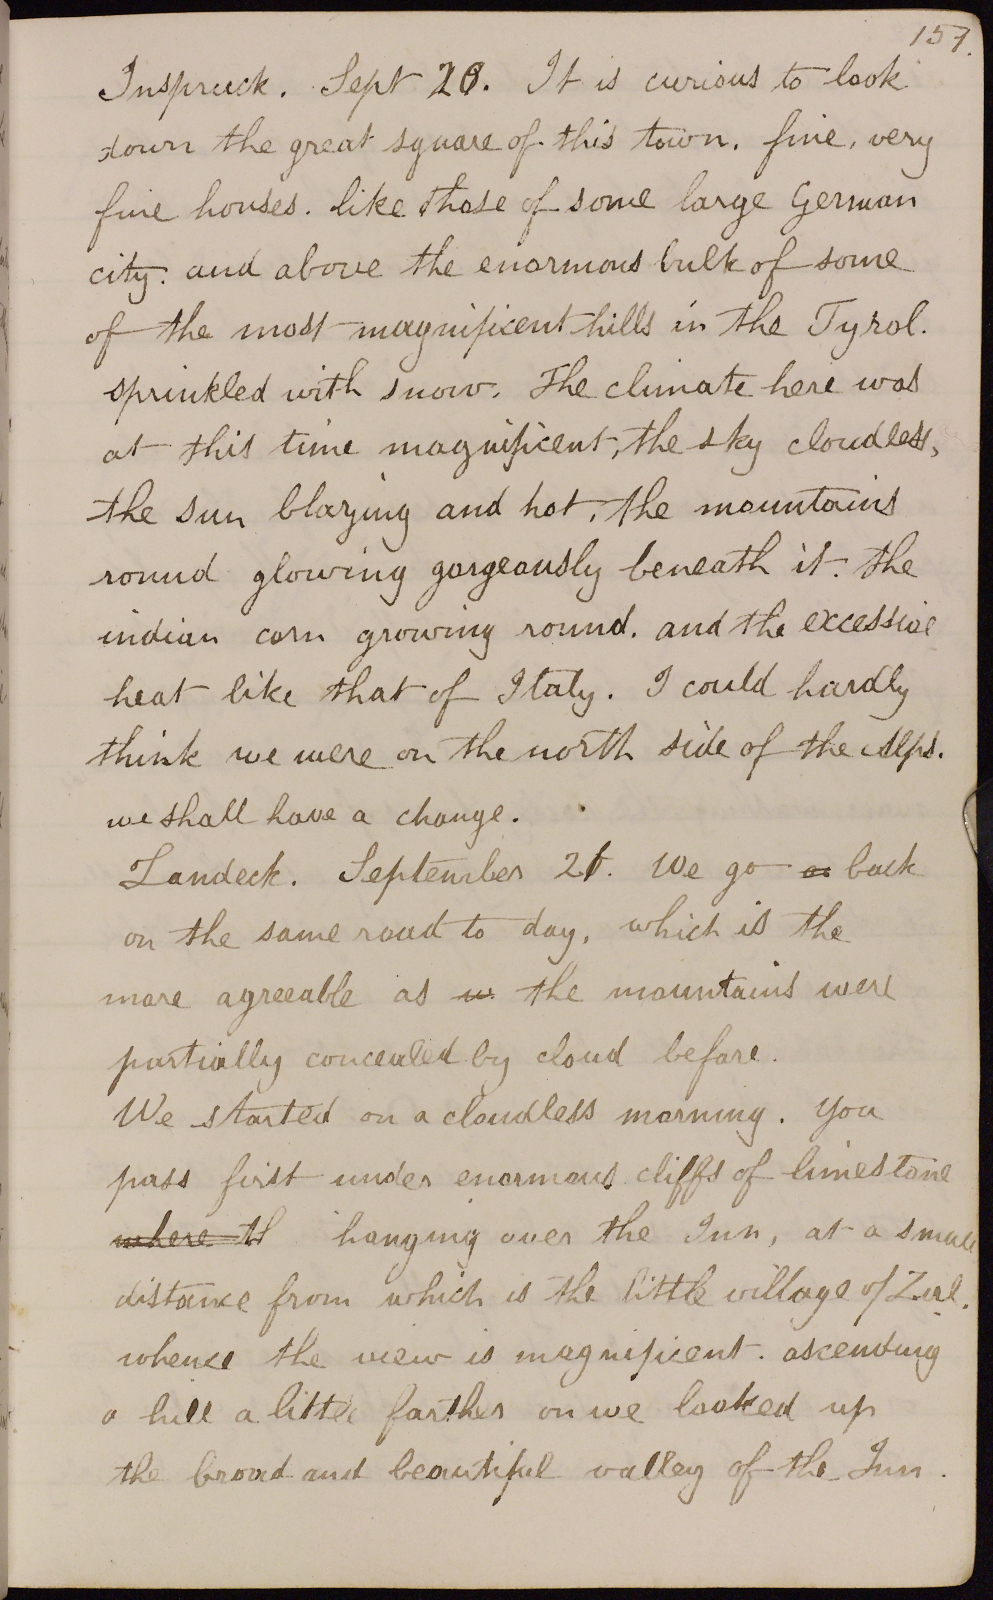 157.
Inspruck. Sept 20. It is curious to look
down the great square of this town. fine, very
fine houses. like those of some large German
city. and above the enormous bulk of some
of the most magnificent hills in the Tyrol.
sprinkled with snow. The climate here was
at this time magnificent, the sky cloudless,
the sun blazing and hot, the mountains
round glowing gorgeously beneath it. the
indian corn growing round. and the excessive
heat like that of Italy. I could hardly
think we were on the north side of the Alps.
we shall have a change.
Landeck. September 21. We go as back
on the same road to day, which is the
more agreeable as w the mountains were
partially concealed by cloud before.
We started on a cloudless morning. You
pass first under enormous cliffs of limestone
where th hanging over the Inn, at a small
distance from which is the little village of Zirl.
whence the view is magnificent. ascending
a hill a little farther on we looked up
the broad and beautiful valley of the Inn.